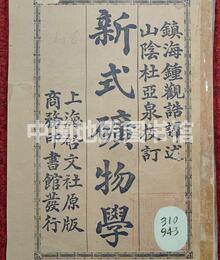 鎮海鍾觀誥譯述
山陰杜亞泉校訂
新式礦物學
上海啓文社原版
商務印書館發行
310
943